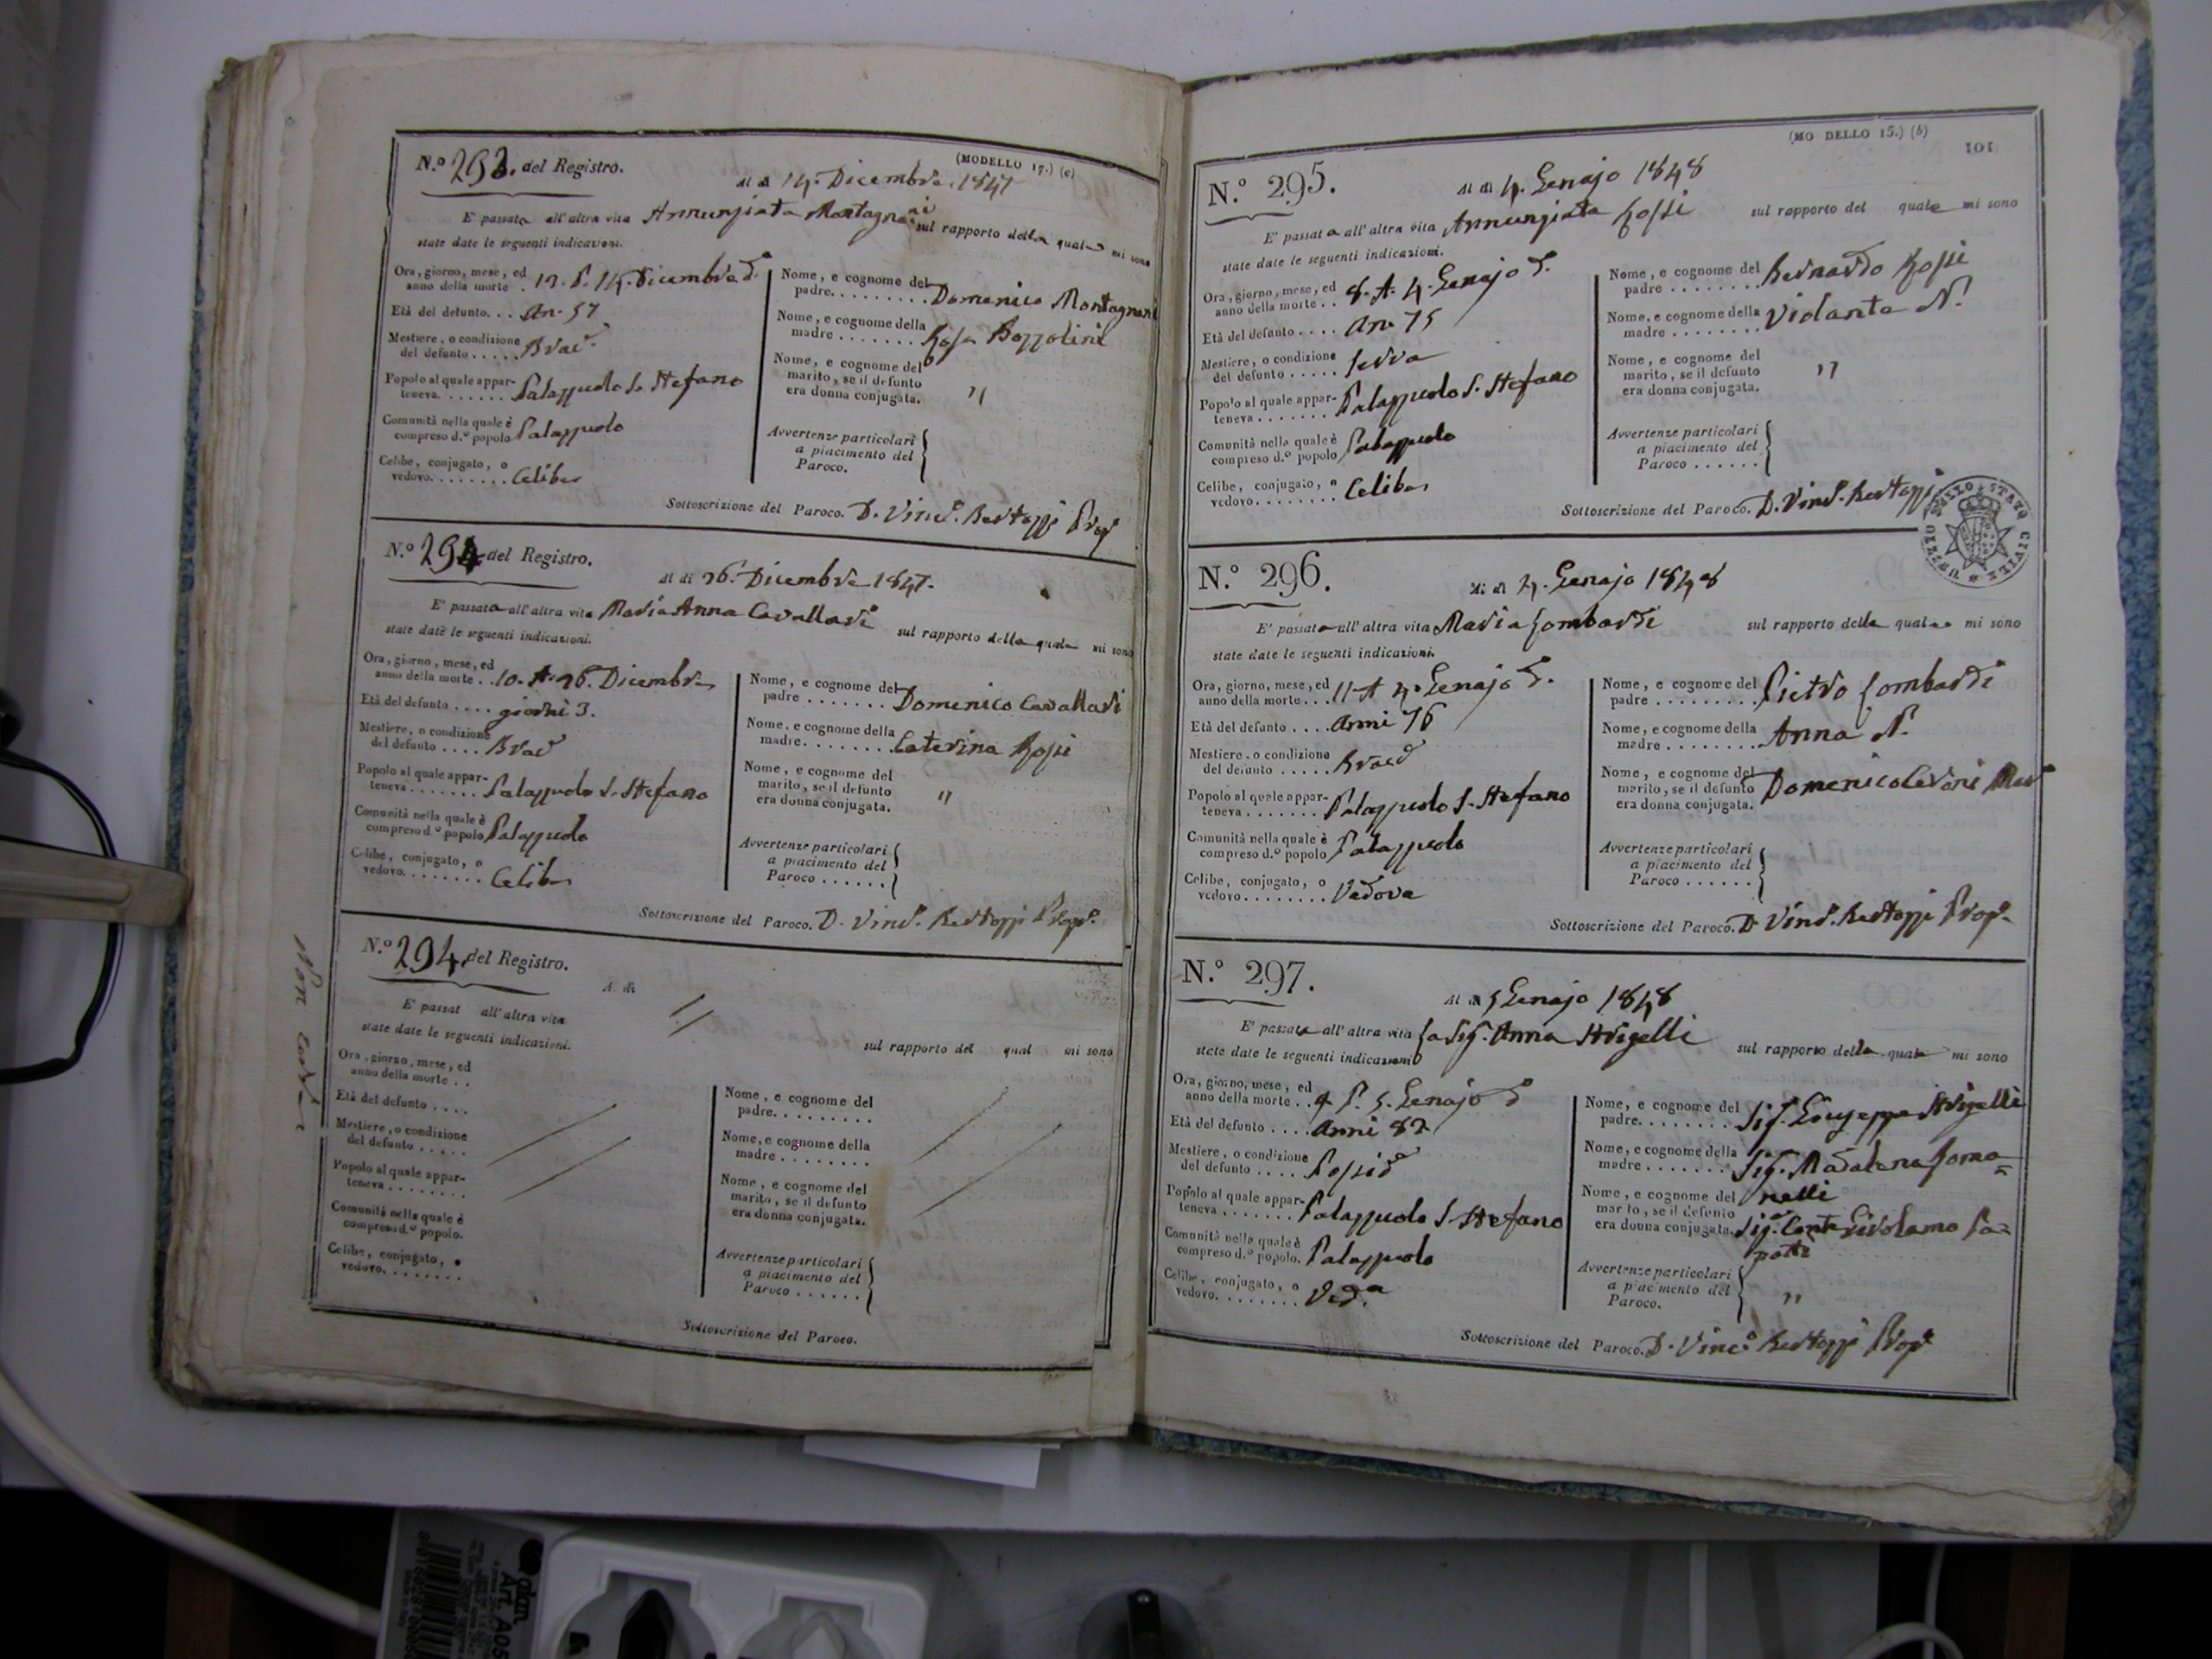 (MODELLO 17.) (c)
N.º 293. del Registro.
Al dì 14. Dicembre 1847
E' passata all'altra vita Annunziata Montagnani sul rapporto della quale mi sono
state date le seguenti indicazioni.
Ora, giorno, mese, ed
anno della morte . 12. P. 14. Dicembre d.º
Età del defunto. . . An. 57
Mestiere, o condizione
del defunto . . . . . Brac.e
Popolo al quale appar-
teneva. . . . . . . . Palazzuolo S. Stefano
Comunità nella quale è
compreso d.º popolo Palazzuolo
Celibe, conjugato, o
vedovo. . . . . . . . Celibe
Nome, e cognome del
padre. . . . . . . . . Domenico Montagnani
Nome, e cognome della
madre . . . . . . . Rosa Bozzolini
Nome, e cognome del
marito, se il defunto
era donna conjugata. "
Avvertenze particolari
a piacimento del
Paroco.
Sottoscrizione del Paroco. D. Vinc.º Bertozzi Prop.º
N.º 294 del Registro.
Al dì 26. Dicembre 1847.
E' passata all'altra vita Maria Anna Cavallari sul rapporto della quale mi sono
state date le seguenti indicazioni.
Ora, giorno, mese, ed
anno della morte . . 10. A. 26. Dicembre
Età del defunto . . . . giorni 3.
Mestiere, o condizione
del defunto . . . . Brac.e
Popolo al quale appar-
teneva . . . . . . . Palazzuolo S. Stefano
Comunità nella quale è
compreso d.º popolo Palazzuolo
Celibe, conjugato, o
vedovo. . . . . . . . Celibe
Nome, e cognome del
padre . . . . . . . Domenico Cavallari
Nome, e cognome della
madre. . . . . . . . Caterina Rossi
Nome, e cognome del
marito, se il defunto
era donna conjugata. "
Avvertenze particolari
a piacimento del
Paroco . . . . . .
Sottoscrizione del Paroco. D. Vinc.º Bertozzi Prop.º
Non
N.º 294. del Registro.
A. dì
E' passat all'altra vita
sul rapporto del qual mi sono
state date le seguenti indicazioni.
Ora, giorno, mese, ed
anno della morte . .
Età del defunto . . . .
Mestiere, o condizione
del defunto . . . . .
Popolo al quale appar-
teneva . . . . . . . .
Comunità nella quale è
compreso d.º popolo.
Celibe, conjugato, o
vedovo. . . . . . . .
Nome, e cognome del
padre. . . . . . . .
Nome, e cognome della
madre . . . . . . . .
Nome, e cognome del
marito, se il defunto
era donna conjugata.
Avvertenze particolari
a piacimento del
Paroco . . . . . .
Sottoscrizione del Paroco.
(MO DELLO 15.) (b)
101
N.º 295.
Al dì 4. Genajo 1848
E' passata all'altra vita Annunziata Rossi sul rapporto del quale mi sono
state date le seguenti indicazioni.
Ora, giorno, mese, ed
anno della morte . . 8. A. 4. Genajo d.º
Età del defunto . . . . An. 75
Mestiere, o condizione
del defunto . . . . . Serva
Popolo al quale appar-
teneva . . . . . . . Palazzuolo S. Stefano
Comunità nella quale è
compreso d.º popolo Palazzuolo
Celibe, conjugato, o
vedovo. . . . . . . . Celibe
Nome, e cognome del
padre . . . . . . . . Bernardo Rossi
Nome, e cognome della
madre . . . . . . . . Violante N.
Nome, e cognome del
marito, se il defunto
era donna conjugata. "
Avvertenze particolari
a piacimento del
Paroco . . . . . .
Sottoscrizione del Paroco. D. Vinc.º Bertozzi
STATO CIVILE
N.º 296.
Al dì 4. Genajo 1848
E' passata all'altra vita Maria Lombardi sul rapporto della quale mi sono
state date le seguenti indicazioni.
Ora, giorno, mese, ed
anno della morte . . . 11. A. 4. Genajo d.º
Età del defunto . . . . Anni 76
Mestiere, o condizione
del defunto . . . . . Brac.e
Popolo al quale appar-
teneva . . . . . . . Palazzuolo S. Stefano
Comunità nella quale è
compreso d.º popolo Palazzuolo
Celibe, conjugato, o
vedovo. . . . . . . . Vedova
Nome, e cognome del
padre . . . . . . . . . Pietro Lombardi
Nome, e cognome della
madre . . . . . . . . . Anna N.
Nome, e cognome del
marito, se il defunto
era donna conjugata. Domenico
Avvertenze particolari
a piacimento del
Paroco . . . . . .
Sottoscrizione del Paroco. D. Vinc.º Bertozzi Prop.º
N.º 297.
Al dì 5 Genajo 1848
E' passata all'altra vita La Sig.ª Anna Strigelli sul rapporto della quale mi sono
state date le seguenti indicazioni
Ora, giorno, mese, ed
anno della morte . . 4 P. 5. Genajo d.º
Età del defunto . . . . Anni 82
Mestiere, o condizione
del defunto . . . . . Possid.e
Popolo al quale appar-
teneva . . . . . . . Palazzuolo S Stefano
Comunità nella quale è
compreso d.º popolo. Palazzuolo
Celibe, conjugato, o
vedovo. . . . . . . . Ved.ª
Nome, e cognome del
padre. . . . . . . . . Sig.r Giuseppe Strigelli
Nome, e cognome della
madre . . . . . . . Sig.ª Madalena
Nome, e cognome del nelli
marito, se il defunto
era donna conjugata. Sig.r Conte Girolamo
Avvertenze particolari
a piacimento del
Paroco. "
Sottoscrizione del Paroco. D. Vinc.º Bertozzi Prop.º
adam
Art. A05